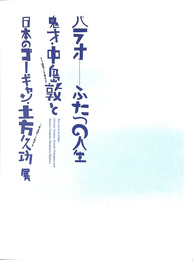 パラオ──ふたつの人生
鬼才・中島敦と
日本のゴーギャン・土方久功 展